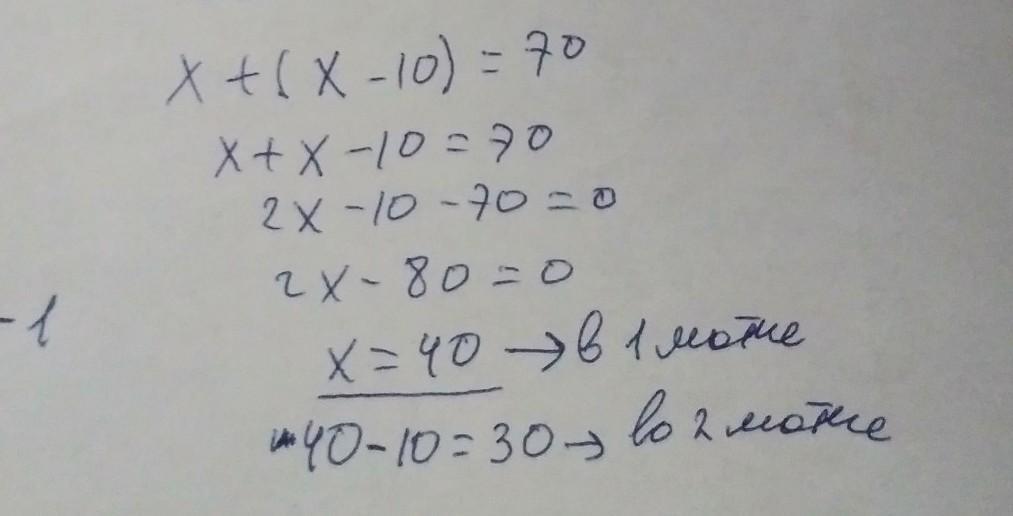 x + (x - 10) = 70
x + x - 10 = 70
2x - 10 - 70 = 0
2x - 80 = 0
- 1
x = 40 → в 1 мотке
40 - 10 = 30 → во 2 мотке